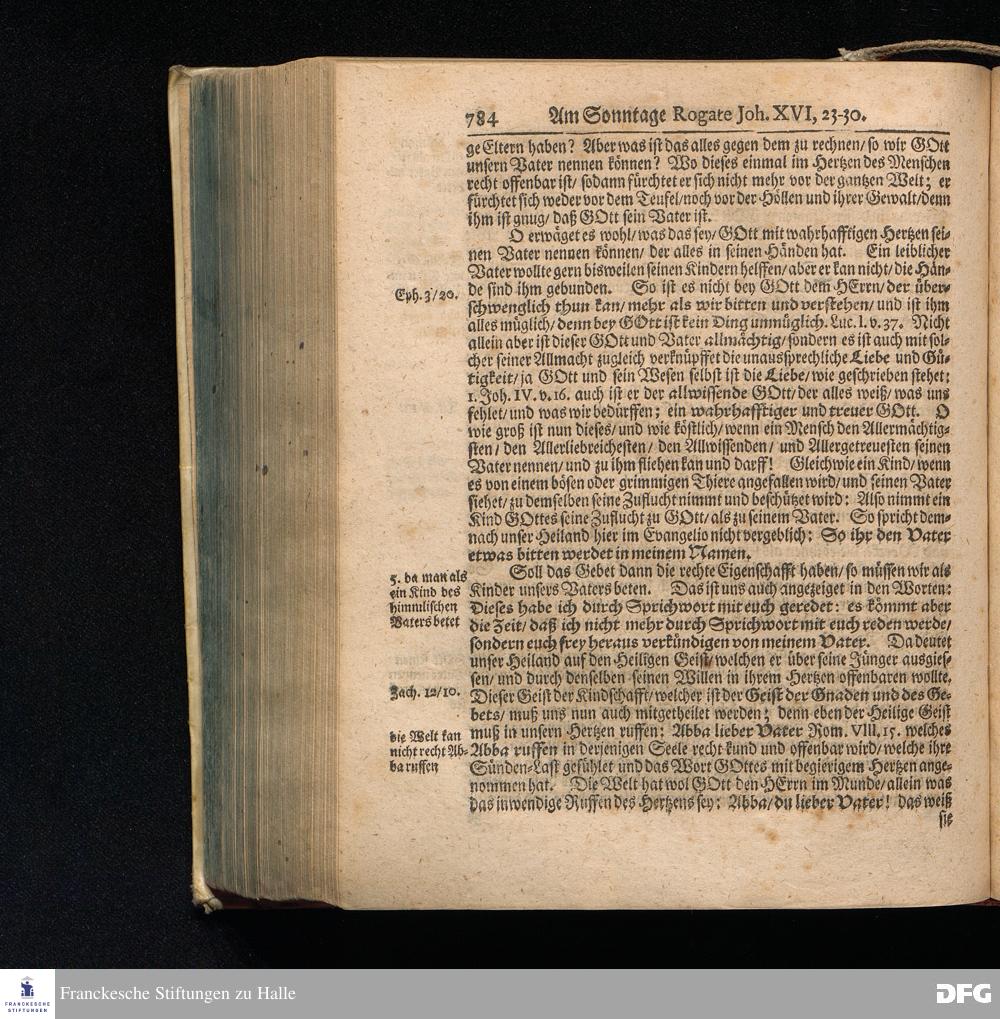 784 Am Sonntage Rogate Joh. XVI, 23-30.
ge Eltern haben? Aber was ist das alles gegen dem zu rechnen/ so wir GOtt
unsern Vater nennen können? Wo dieses einmal im Hertzen des Menschen
recht offenbar ist/ sodann fürchtet er sich nicht mehr vor der gantzen Welt; er
fürchtet sich weder vor dem Teufel/ noch vor der Höllen und ihrer Gewalt/ denn
ihm ist gnug/ daß GOtt sein Vater ist.
O erwäget es wohl/ was das sey/ GOtt mit wahrhafftigen Hertzen sei-
nen Vater nennen können/ der alles in seinen Händen hat. Ein leiblicher
Vater wollte gern bisweilen seinen Kindern helffen/ aber er kan nicht/ die Hän-
de sind ihm gebunden. So ist es nicht bey GOtt dem HErrn/ der über-
Eph. 3/20.
schwenglich thun kan/ mehr als wir bitten und verstehen/ und ist ihm
alles müglich/ denn bey GOtt ist kein Ding unmüglich. Luc. I. v. 37. Nicht
allein aber ist dieser GOtt und Vater allmächtig/ sondern es ist auch mit sol-
cher seiner Allmacht zugleich verknüpffet die unaussprechliche Liebe und Gü-
tigkeit/ ja GOtt und sein Wesen selbst ist die Liebe/ wie geschrieben stehet:
1. Joh. IV. v. 16. auch ist er der allwissende GOtt/ der alles weiß/ was uns
fehlet/ und was wir bedürffen; ein wahrhafftiger und treuer GOtt. O
wie groß ist nun dieses/ und wie köstlich/ wenn ein Mensch den Allermächtig-
sten/ den Allerliebreichesten/ den Allwissenden/ und Allergetreuesten seinen
Vater nennen/ und zu ihm fliehen kan und darff! Gleichwie ein Kind/ wenn
es von einem bösen oder grimmigen Thiere angefallen wird/ und seinen Vater
siehet/ zu demselben seine Zuflucht nimmt und beschützet wird: Also nimmt ein
Kind GOttes seine Zuflucht zu GOtt/ als zu seinem Vater. So spricht dem-
nach unser Heiland hier im Evangelio nicht vergeblich: So ihr den Vater
etwas bitten werdet in meinem Namen.
5. da man als
ein Kind des
himmlischen
Vaters betet
Soll das Gebet dann die rechte Eigenschafft haben/ so müssen wir als
Kinder unsers Vaters beten. Das ist uns auch angezeiget in den Worten:
Dieses habe ich durch Sprichwort mit euch geredet: es kömmt aber
die Zeit/ daß ich nicht mehr durch Sprichwort mit euch reden werde/
sondern euch frey heraus verkündigen von meinem Vater. Da deutet
unser Heiland auf den Heiligen Geist/ welchen er über seine Jünger ausgies-
sen/ und durch denselben seinen Willen in ihrem Hertzen offenbaren wollte.
Zach. 12/10.
Dieser Geist der Kindschafft/ welcher ist der Geist der Gnaden und des Ge-
bets/ muß uns nun auch mitgetheilet werden; denn eben der Heilige Geist
muß in unsern Hertzen ruffen: Abba lieber Vater Rom. VIII, 15. welches
die Welt kan
nicht recht Ab-
ba ruffen
Abba ruffen in derjenigen Seele recht kund und offenbar wird/ welche ihre
Sünden-Last gefühlet und das Wort GOttes mit begierigem Hertzen ange-
nommen hat. Die Welt hat wol GOtt den HErrn im Munde/ allein was
das inwendige Ruffen des Hertzens sey: Abba/ du lieber Vater! das weiß
sie
FRANCKESCHE
STIFTUNGEN
Franckesche Stiftungen zu Halle
DFG